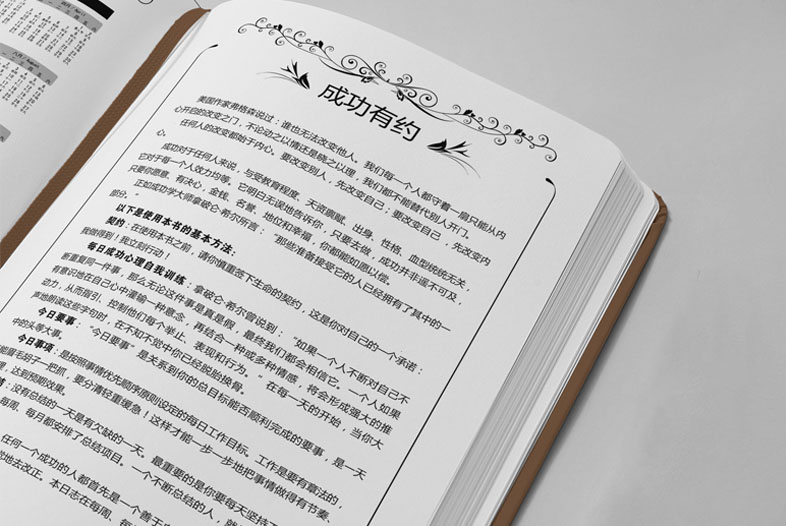 成功有约
美国作家弗格森说过：谁也无法改变他人。我们每一个人都守着一扇只能从内
心开启的改变之门，不论动之以情还是晓之以理，我们都不能替代别人开门。
任何人的改变都始于内心。要改变别人，先改变自己；要改变自己，先改变内
心。
成功对于任何人来说，与受教育程度、天资禀赋、出身、性格、血型统统无关，
它对于每一个人效力均等。它明白无误地告诉你，只要去做，成功并非遥不可及，
只要你愿意、有决心，金钱、名誉、地位和幸福，你都能如愿以偿。
正如成功学大师拿破仑·希尔所言："那些准备接受它的人已经拥有了其中的一
部分。"
以下是使用本书的基本方法：
契约：在使用本书之前，请你慎重签下生命的契约，这是你对自己的一个承诺：
我做得到！我立刻行动！
每日成功心理自我训练：拿破仑·希尔曾说到："如果一个人不断对自己不
断重复同一件事，那么无论这件事是真是假，最终我们都会相信它。一个人如果
有意识地在自己心中灌输一种意念，再结合一种或多种情感，将会形成强大的推
动力，从而指引、控制他们每个举止、表现和行为。"在每一天的开始，当你大
声地朗读这些字句时，在不知不觉中你已经脱胎换骨。
今日要事："今日要事"是关系到你的总目标能否顺利完成的要事，是一天
中的头等大事。
今日事项：是按照事情优先顺序原则设定的每日工作目标。工作是要有章法的，
能眉毛胡子一把抓，要分清轻重缓急！这样才能一步一步地把事情做得有节奏、
达到预期效果。
：没有总结的一天是有欠缺的一天。最重要的是你要每天坚持
每周、每月都安排了总结项目。一个不断总结的人，
任何一个成功的人都首先是一个善于
地去改正。本日志在每周、每